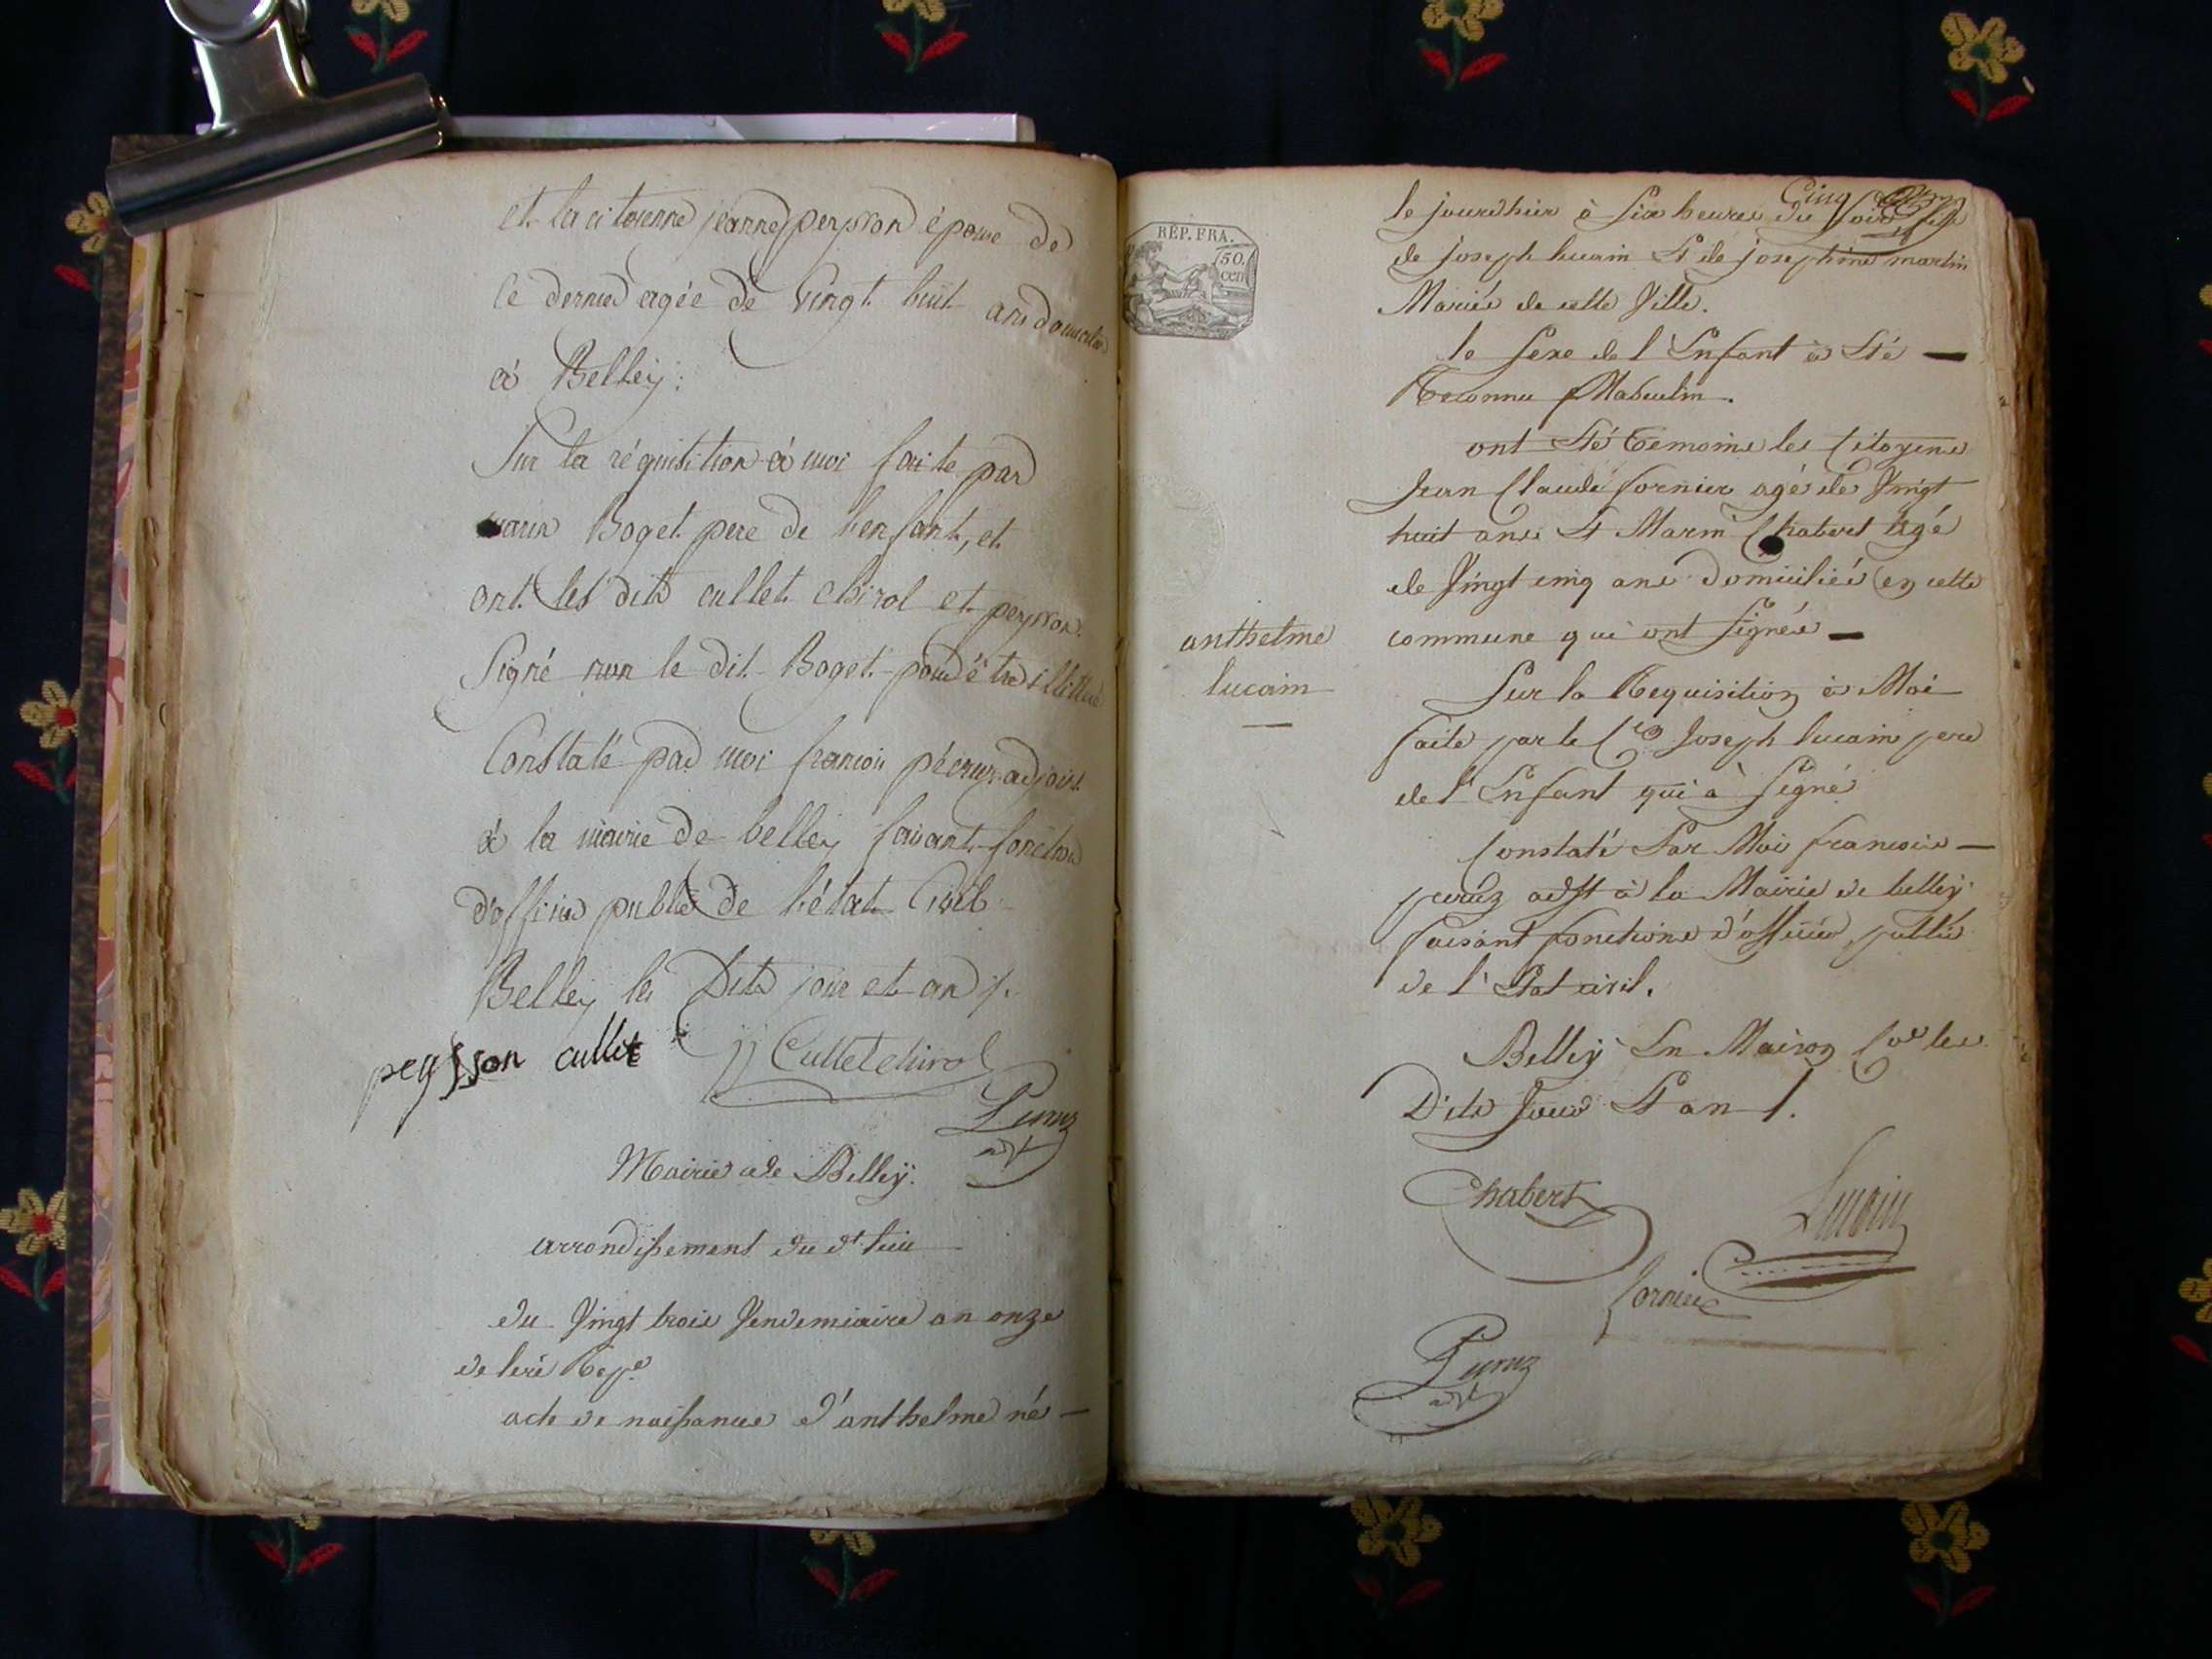 et la citoienne jeanne peysson épouse de
ce dernier agée de vingt huit ans domiciliés
à Belley.
Sur la réquisition à moi faite par
Boget pere de l'enfant, et
ont les dits cullet chirol et peysson
Signé non le dit Boget pour être illitteré
Constaté par moi francois péruz adjoint
à la mairie de belley faisant fonction
d'officier public de l'état Civil
Belley les Dits jour et an
peysson cullet JJ Cullet chirol
Peruz
adjt
Mairie de Belley.
arrondissement du dt lieu
du Vingt trois Vendemiaire an onze
de l'ere Repe
acte de naissance d'anthelme né —
Cinq
le jourd'huir à Six heures du Soir fils
de joseph lucain Et de josephine martin
Mariés de cette Ville.
le Sexe de l'Enfant à Eté —
Reconnu Masculin.
ont Eté Temoins les Citoyens
Jean Claude Cornier agé de Vingt
huit ans Et Marin Chabert agé
de Vingt cinq ans domiciliés en cette
commune qui ont Signés —
anthelme
lucain
Sur la Requisition à Moi
faite par le Cen Joseph lucain pere
de l'Enfant qui à Signé
Constaté Par Moi francois —
peruz adjt à la Mairie de belley
faisant fonctions d'officier public
de l'Etat civil.
Belley En Maison Coe les
Dits Jour Et an
Chabert
Lucain
Cornier
Peruz
adjt
RÉP. FRA.
50.
cen